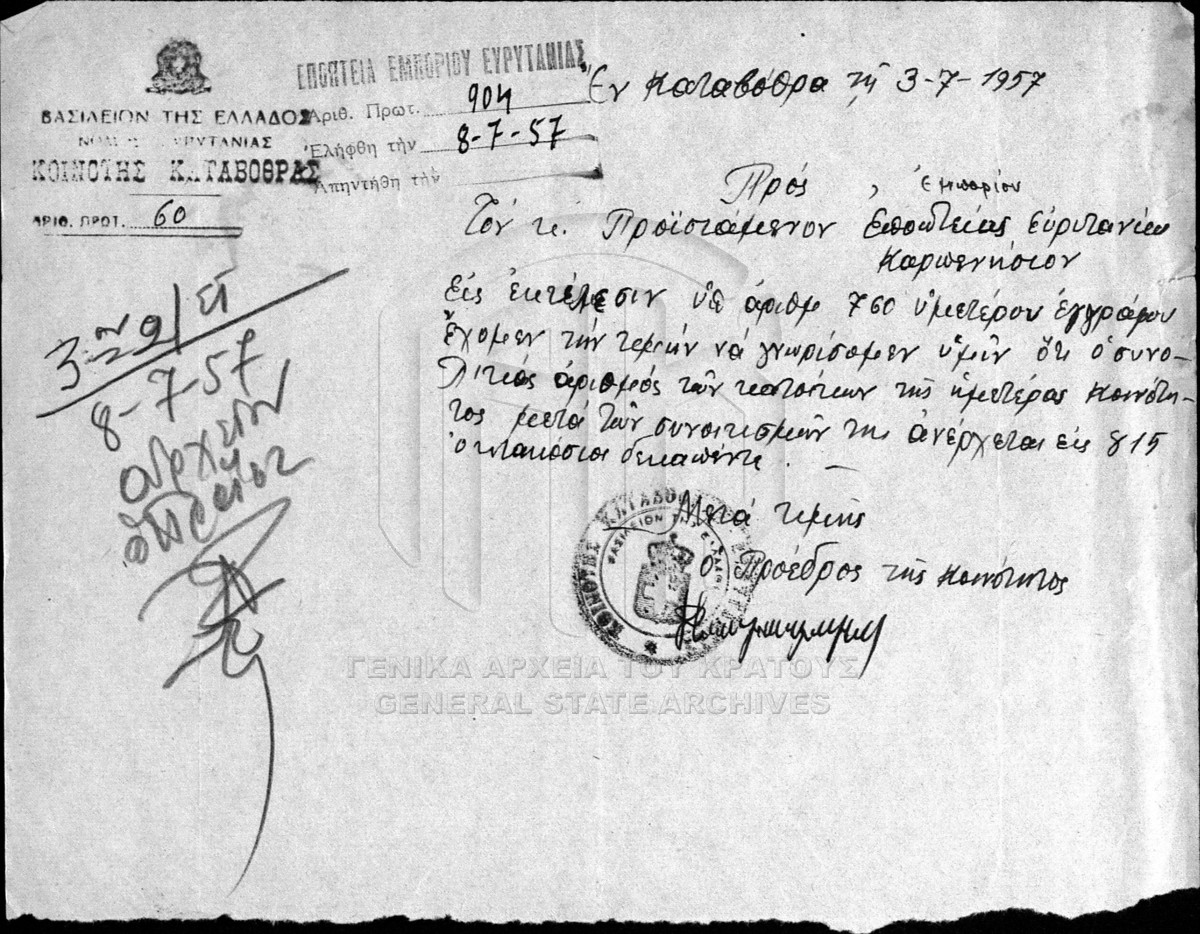 ΒΑΣΙΛΕΙΟΝ ΤΗΣ ΕΛΛΑΔΟΣ
ΚΟΙΝΟΤΗΣ ΚΑΤΑΒΟΘΡΑΣ
ΑΡΙΘ. ΠΡΩΤ. 60
ΕΠΟΠΤΕΙΑ ΕΜΠΟΡΙΟΥ ΕΥΡΥΤΑΝΙΑΣ
Ἀριθ. Πρωτ. 904
Ἐλήφθη τὴν 8-7-57
Ἀπηντήθη τὴν
Ἐν Καταβόθρα τῇ 3-7-1957
Πρός
Ἐμπορίου
Τόν κ. Προϊστάμενον Ἐποπτείας Εὐριτανίας
Καρπενήσιον
Εἰς ἐκτέλεσιν ὑπ ἀριθμ 760 ὑμετέρου ἐγγράφου
ἔχομεν τήν τιμήν νά γνωρίσομεν ὑμῖν ὅτι ὁ συνο-
λικός ἀριθμός τῶν κατοίκων τῆς ἡμετέρας Κοινότη-
τος μετά τῶν συνοικισμῶν της ἀνέρχεται εἰς 815
ὀκτακόσιοι δεκαπέντε. —
Μετά τιμῆς
Ὁ Πρόεδρος τῆς Κοινότητος
8-7-57
ἀρχεῖον
ΚΟΙΝΟΤΗΣ ΚΑΤΑΒΟΘΡΑΣ
ΒΑΣΙΛΕΙΟΝ ΤΗΣ ΕΛΛΑΔΟΣ
ΓΕΝΙΚΑ ΑΡΧΕΙΑ ΤΟΥ ΚΡΑΤΟΥΣ
GENERAL STATE ARCHIVES